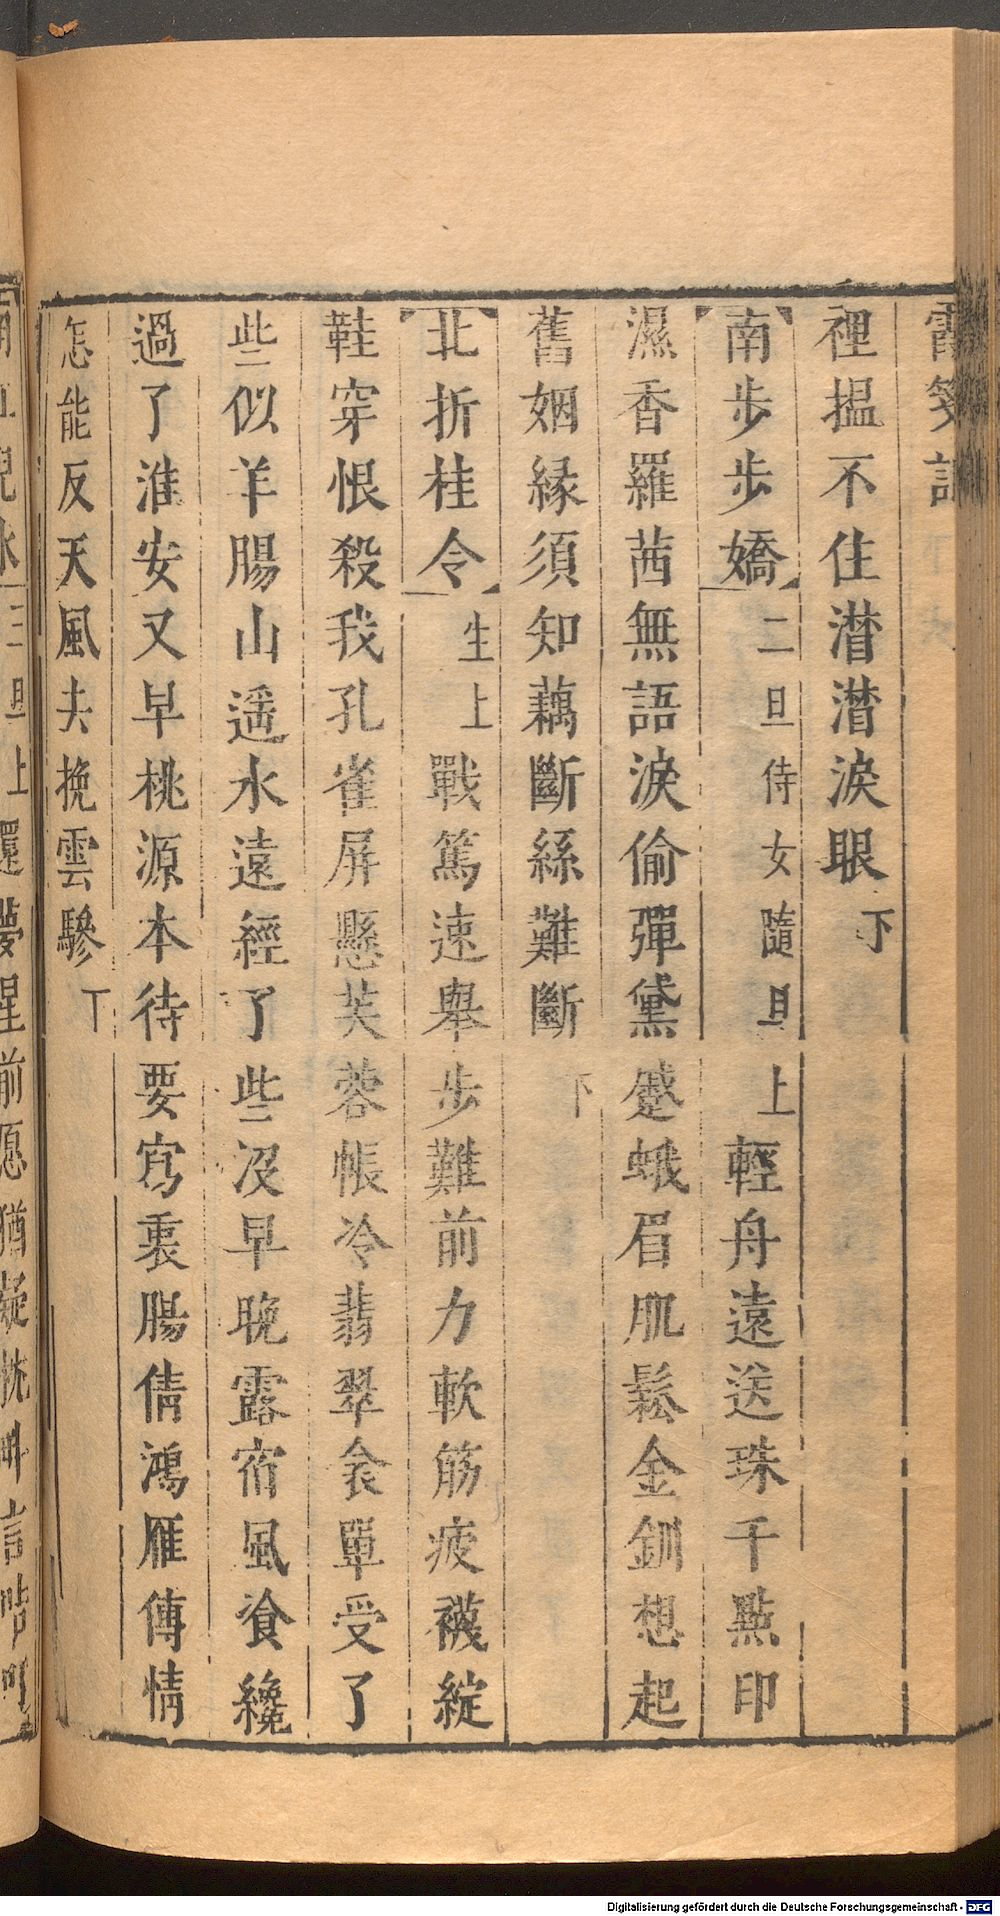 霞箋記
裡搵不住潸潸淚眼下
南步步嬌二旦侍女隨旦上輕舟遠送珠千點印
濕香羅茜無語淚偷彈黛蹙蛾眉肌鬆金釧想起
舊姻緣須知藕斷絲難斷下
北折桂令生上戰篤速舉步難前力軟筋疲襪綻
鞋穿恨殺我孔雀屏懸芙蓉帳冷翡翠衾單受了
些似羊腸山遥水遠經了些没早晚露宿風飡纔
過了淮安又早桃源本待要寫衷腸倩鴻雁傳情
怎能反天風夫挽雲驂下
旦上還夢醒前愿猶凝
Digitalisierung gefördert durch die Deutsche Forschungsgemeinschaft - DFG